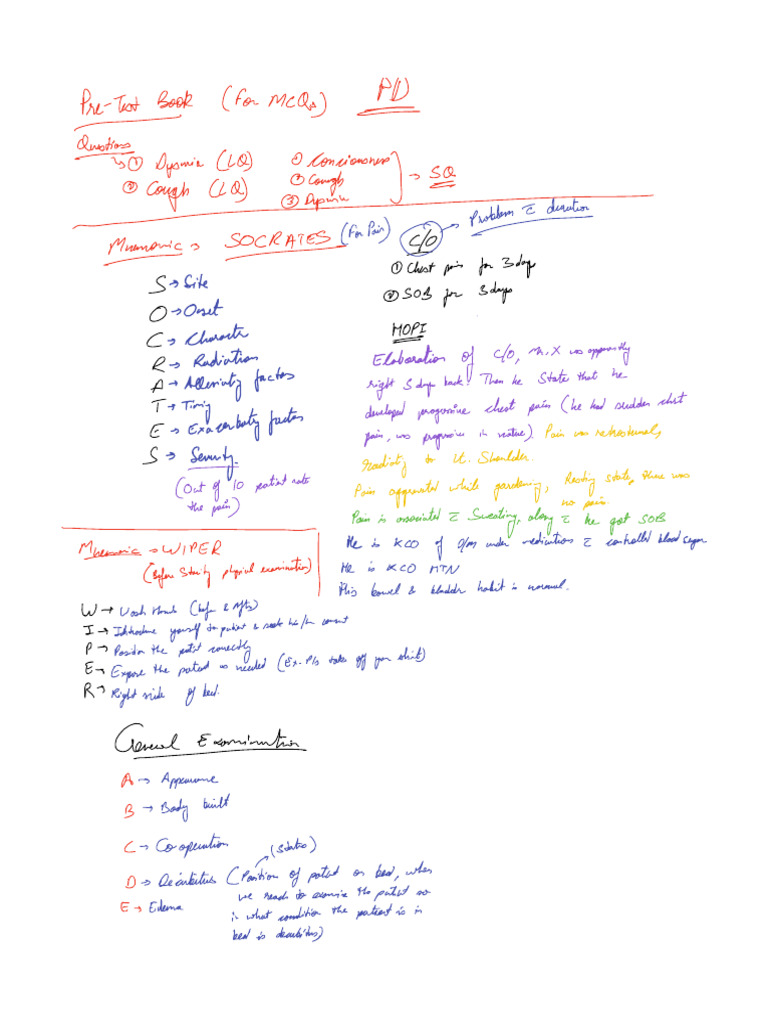 Pre-Test Book (For MCQs) PD
Questions
↳ ① Dyspnia (LQ)
② Cough (LQ)
① Conciousness
② Cough
③ Dyspnia
→ SQ
Mnemonic → SOCRATES (For Pain)
S → Site
O → Onset
C → Character
R → Radiation
A → Alleviaty factors
T → Timing
E → Exacerbaty factors
S → Severity
(Out of 10 patient rate
the pain)
C/O → Problem c̄ duration
① Chest pain for 3 days
② SOB for 3 days
HOPI
Elaboration of C/O, Mr. X was apparently
right 3 days back. Then he State that he
developed progressive chest pain (he had sudden chest
pain, was progressive in nature). Pain was retrosternal,
radiaty to Lt. Shoulder.
Pain aggravated while gardening, Resting state, there was
no pain.
Pain is associated c̄ Sweating, along c̄ he got SOB
He is KCO of D/M under medications c̄ controlled blood sugar
He is KCO HTN
His bowel & bladder habit is normal.
Mnemonic → WIPER
(Before Starity physical examination)
W → Wash Hands (before & After)
I → Introduce yourself to patient & seek his/her consent
P → Position the patient correctly
E → Expose the patient as needed (Ex- Pls take off your shirt)
R → Right side of bed.
General Examination
A → Appearance
B → Body built
C → Co-operation
(States)
D → Decubitus (Position of patient on bed, when
we reach to examine the patient so
in what condition the patient is in
bed is decubitus)
E → Edema